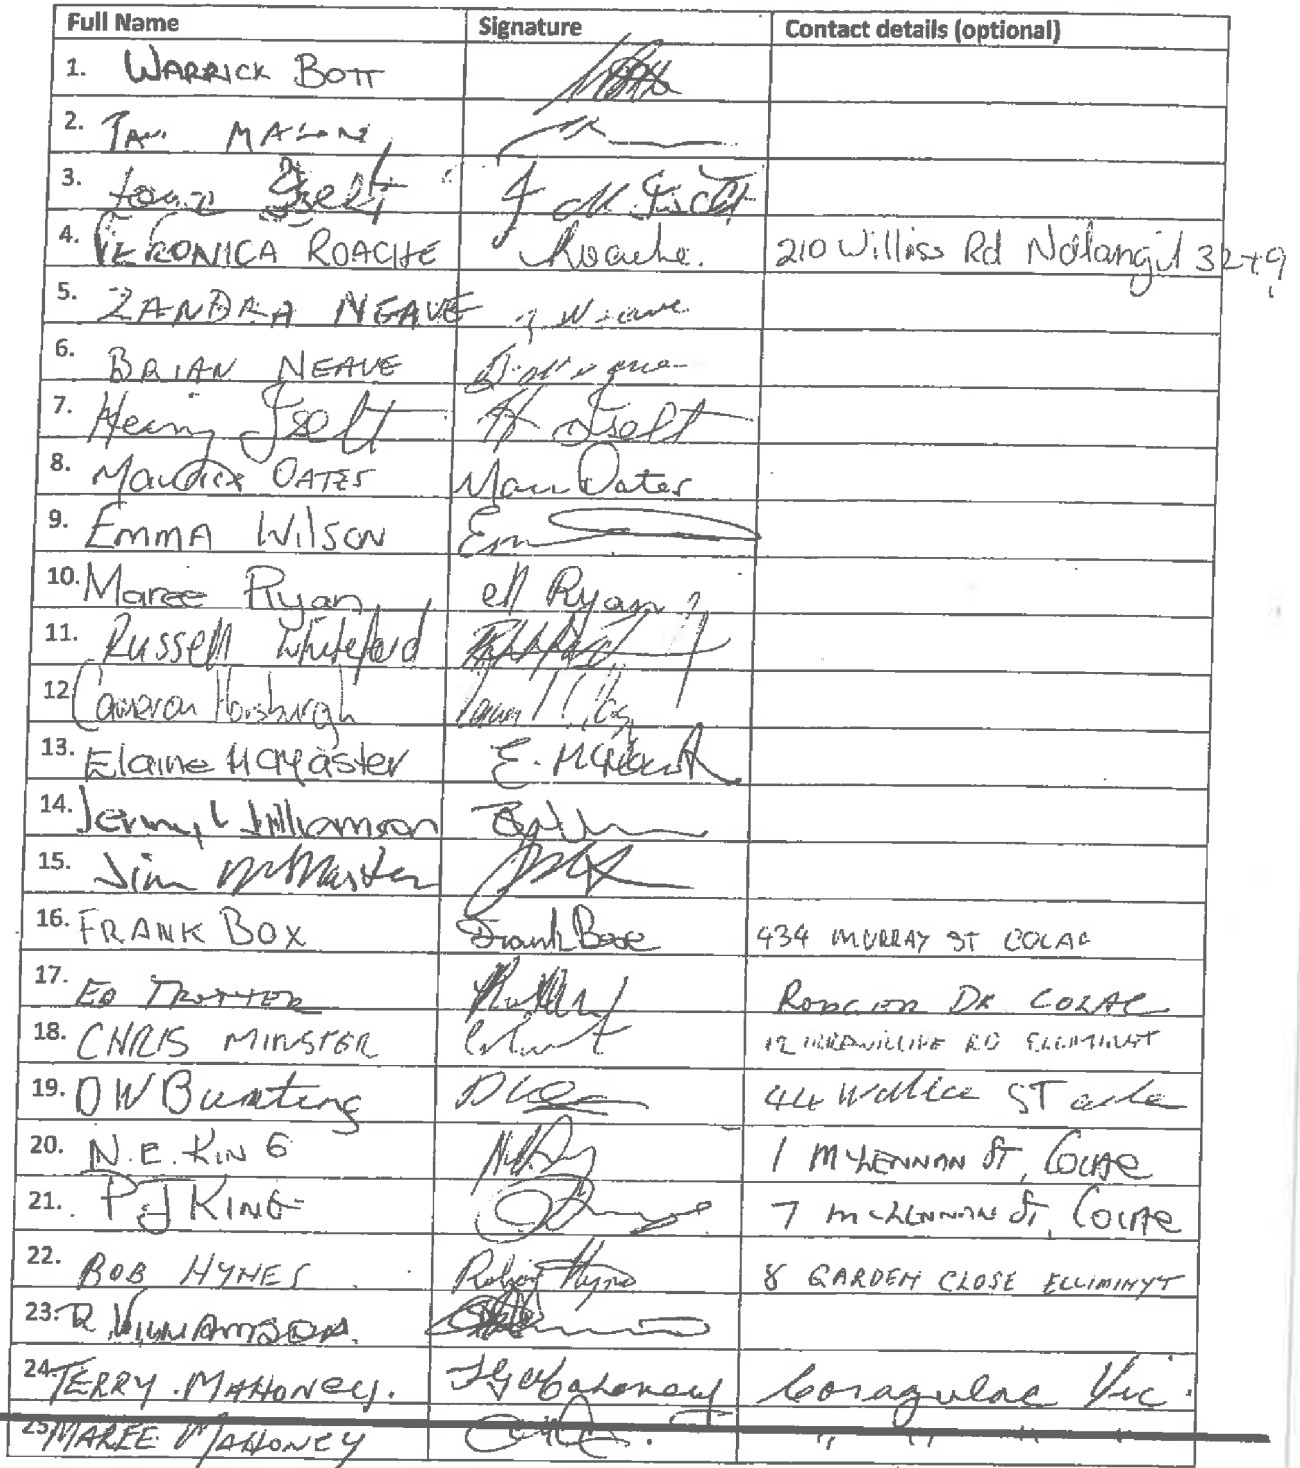 Full Name Signature Contact details (optional)
1. WARRICK BOTT
2.
3. Iselt
4. VERONICA ROACHE Roache. 210 Williss Rd Ndlangil 3249
5. ZANDRA NEAVE
6. BRIAN NEAVE
7. Henry Iselt H Iselt
8. Maurice OATES Mau Oates
9. EMMA WilsoN Em
10. Maree Ryan M Ryan
11. Russell Whiteford
12 Cameron Horsburgh
13. Elaine McMaster E. McMaster
14. Jenny Williamson
15. Jim McMaster
16. FRANK BOX Frank Box 434 MURRAY ST COLAC
17. ED TROTTER DR COLAC
18. CHRIS MINSTER 12 RD ELLIMINYT
19. DW Bunting 44 Wallace ST
20. N.E. KING 1 McLENNAN ST, COLAC
21. PJ KING 7 McLENNAN ST, COLAC
22. BOB HYNES Robert Hynes 8 GARDEN CLOSE ELLIMINYT
23. R WILLIAMSON.
24. TERRY. MAHONEY. TG Mahoney Coragulac Vic.
25 MAREE MAHONEY " " " "